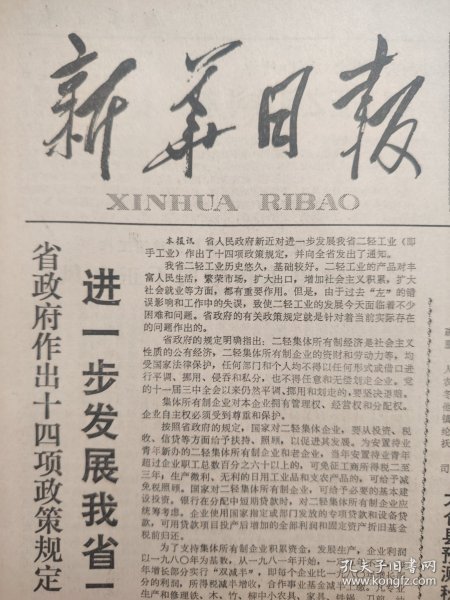 新华日报
XINHUA RIBAO
省政府作出十四项政策规定
进一步发展我省一
本报讯 省人民政府新近对进一步发展我省二轻工业（即
手工业）作出了十四项政策规定，并向全省发出了通知。
我省二轻工业历史悠久，基础较好。二轻工业的产品对丰
富人民生活，繁荣市场，扩大出口，增加社会主义积累，扩大
社会就业等方面，都有重要作用。但是，由于过去“左”的错
误影响和工作中的失误，致使二轻工业的发展今天面临着不少
困难和问题。省政府的有关政策规定就是针对着当前实际存在
的问题作出的。
省政府的规定明确指出：二轻集体所有制经济是社会主义
性质的公有经济，二轻集体所有制企业的资财和劳动力等，均
受国家法律保护，任何部门和个人均不得以任何形式或借口进
行平调、挪用、侵吞和私分，也不得任意和无偿划走企业。党
的十一届三中全会以来仍然平调、挪用和划走的，要坚决退赔。
集体所有制企业对本企业拥有管理权、经营权和分配权。
企业自主权必须受到尊重和保护。
按照省政府的规定，国家对二轻集体企业，要从投资、税
收、信贷等方面给予扶持、照顾，以促进其发展。为安置待业
青年新办的二轻集体所有制企业和老企业，当年安置待业青年
超过企业职工总数百分之六十以上的，可免征工商所得税二至
三年；生产微利、无利的日用工业品和支农产品的，可给予减
免税照顾。国家对二轻集体所有制企业，可给予必要的基本建
设投资。银行在分配中短期贷款时，对二轻集体所有制企业应
统筹考虑。企业使用国家指定或部门发放的专项贷款和设备贷
款，可用贷款项目投产后增加的全部利润和固定资产折旧基金
税前归还。
为了支持集体所有制企业积累资金，发展生产，企业利润
以一九八〇年为基数，从一九八一年开始，一
年增长部分实行“双减半”，即每个企业比一
分的利润，所得税减半增收，合作事业基金减半
生产和修理铁、木、竹、柳中小农具、家具
孔夫子旧书网